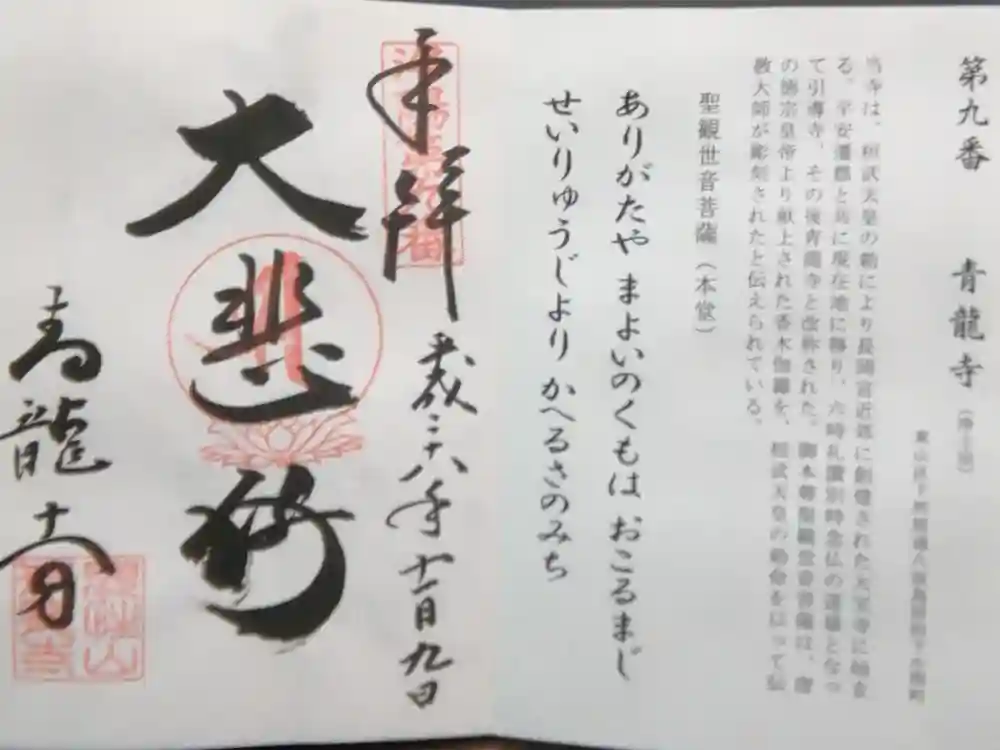 第九番 青龍寺（浄土宗）
当寺は、桓武天皇の勅により長岡京近郊に創建された大宝寺に始ま
る。平安遷都と共に現在地に移り、六時礼讃別時念仏の道場となっ
て引導寺、その後青龍寺と改称された。御本尊聖観世音菩薩は、唐
の徳宗皇帝より献上された香木伽羅を、桓武天皇の勅命を以って伝
教大師が彫刻されたと伝えられている。
聖観世音菩薩（本堂）
ありがたや まよいのくもは おこるまじ
せいりゅうじより かへるさのみち
奉拝
平成二十八年十一月九日
大悲殿
青龍寺